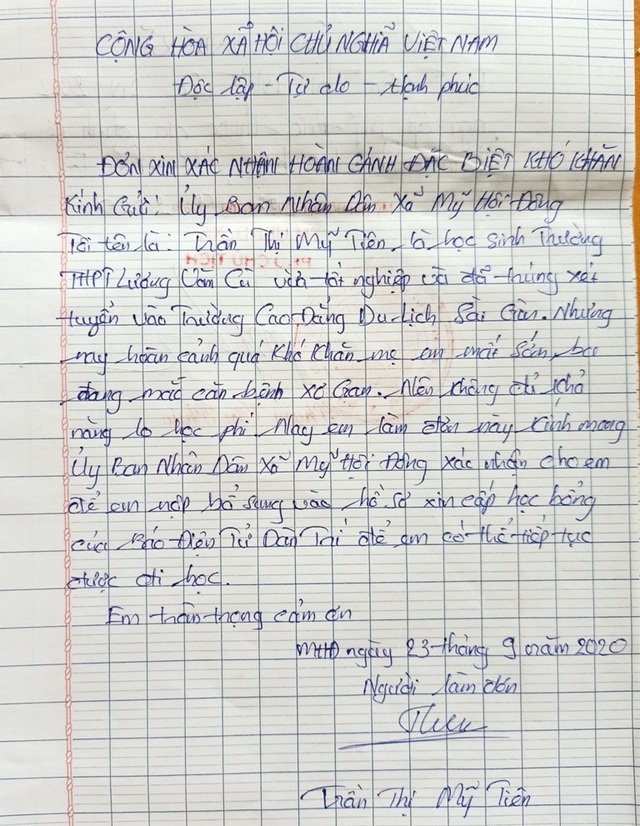 CỘNG HÒA XÃ HỘI CHỦ NGHĨA VIỆT NAM
Độc lập - Tự do - Hạnh phúc
ĐƠN XIN XÁC NHẬN HOÀN CẢNH ĐẶC BIỆT KHÓ KHĂN
Kính Gửi: Ủy Ban Nhân Dân Xã Mỹ Hội Đông
Tôi tên là: Trần Thị Mỹ Tiên, là học sinh Trường
THPT Lương Văn Cù vừa tốt nghiệp và đã trúng xét
tuyển vào Trường Cao Đẳng Du Lịch Sài Gòn. Nhưng
nay hoàn cảnh quá khó khăn mẹ em mất sớm, ba
đang mắc căn bệnh xơ Gan. Nên không đủ khả
năng lo học phí. Nay em làm đơn này kính mong
Ủy Ban Nhân Dân Xã Mỹ Hội Đông xác nhận cho em
để em nộp bổ sung vào hồ sơ xin cấp học bổng
của Báo Điện Tử Dân Trí để em có thể tiếp tục
được đi học.
Em trân trọng cảm ơn
MHĐ ngày 23 tháng 9 năm 2020
Người làm đơn
Trần Thị Mỹ Tiên